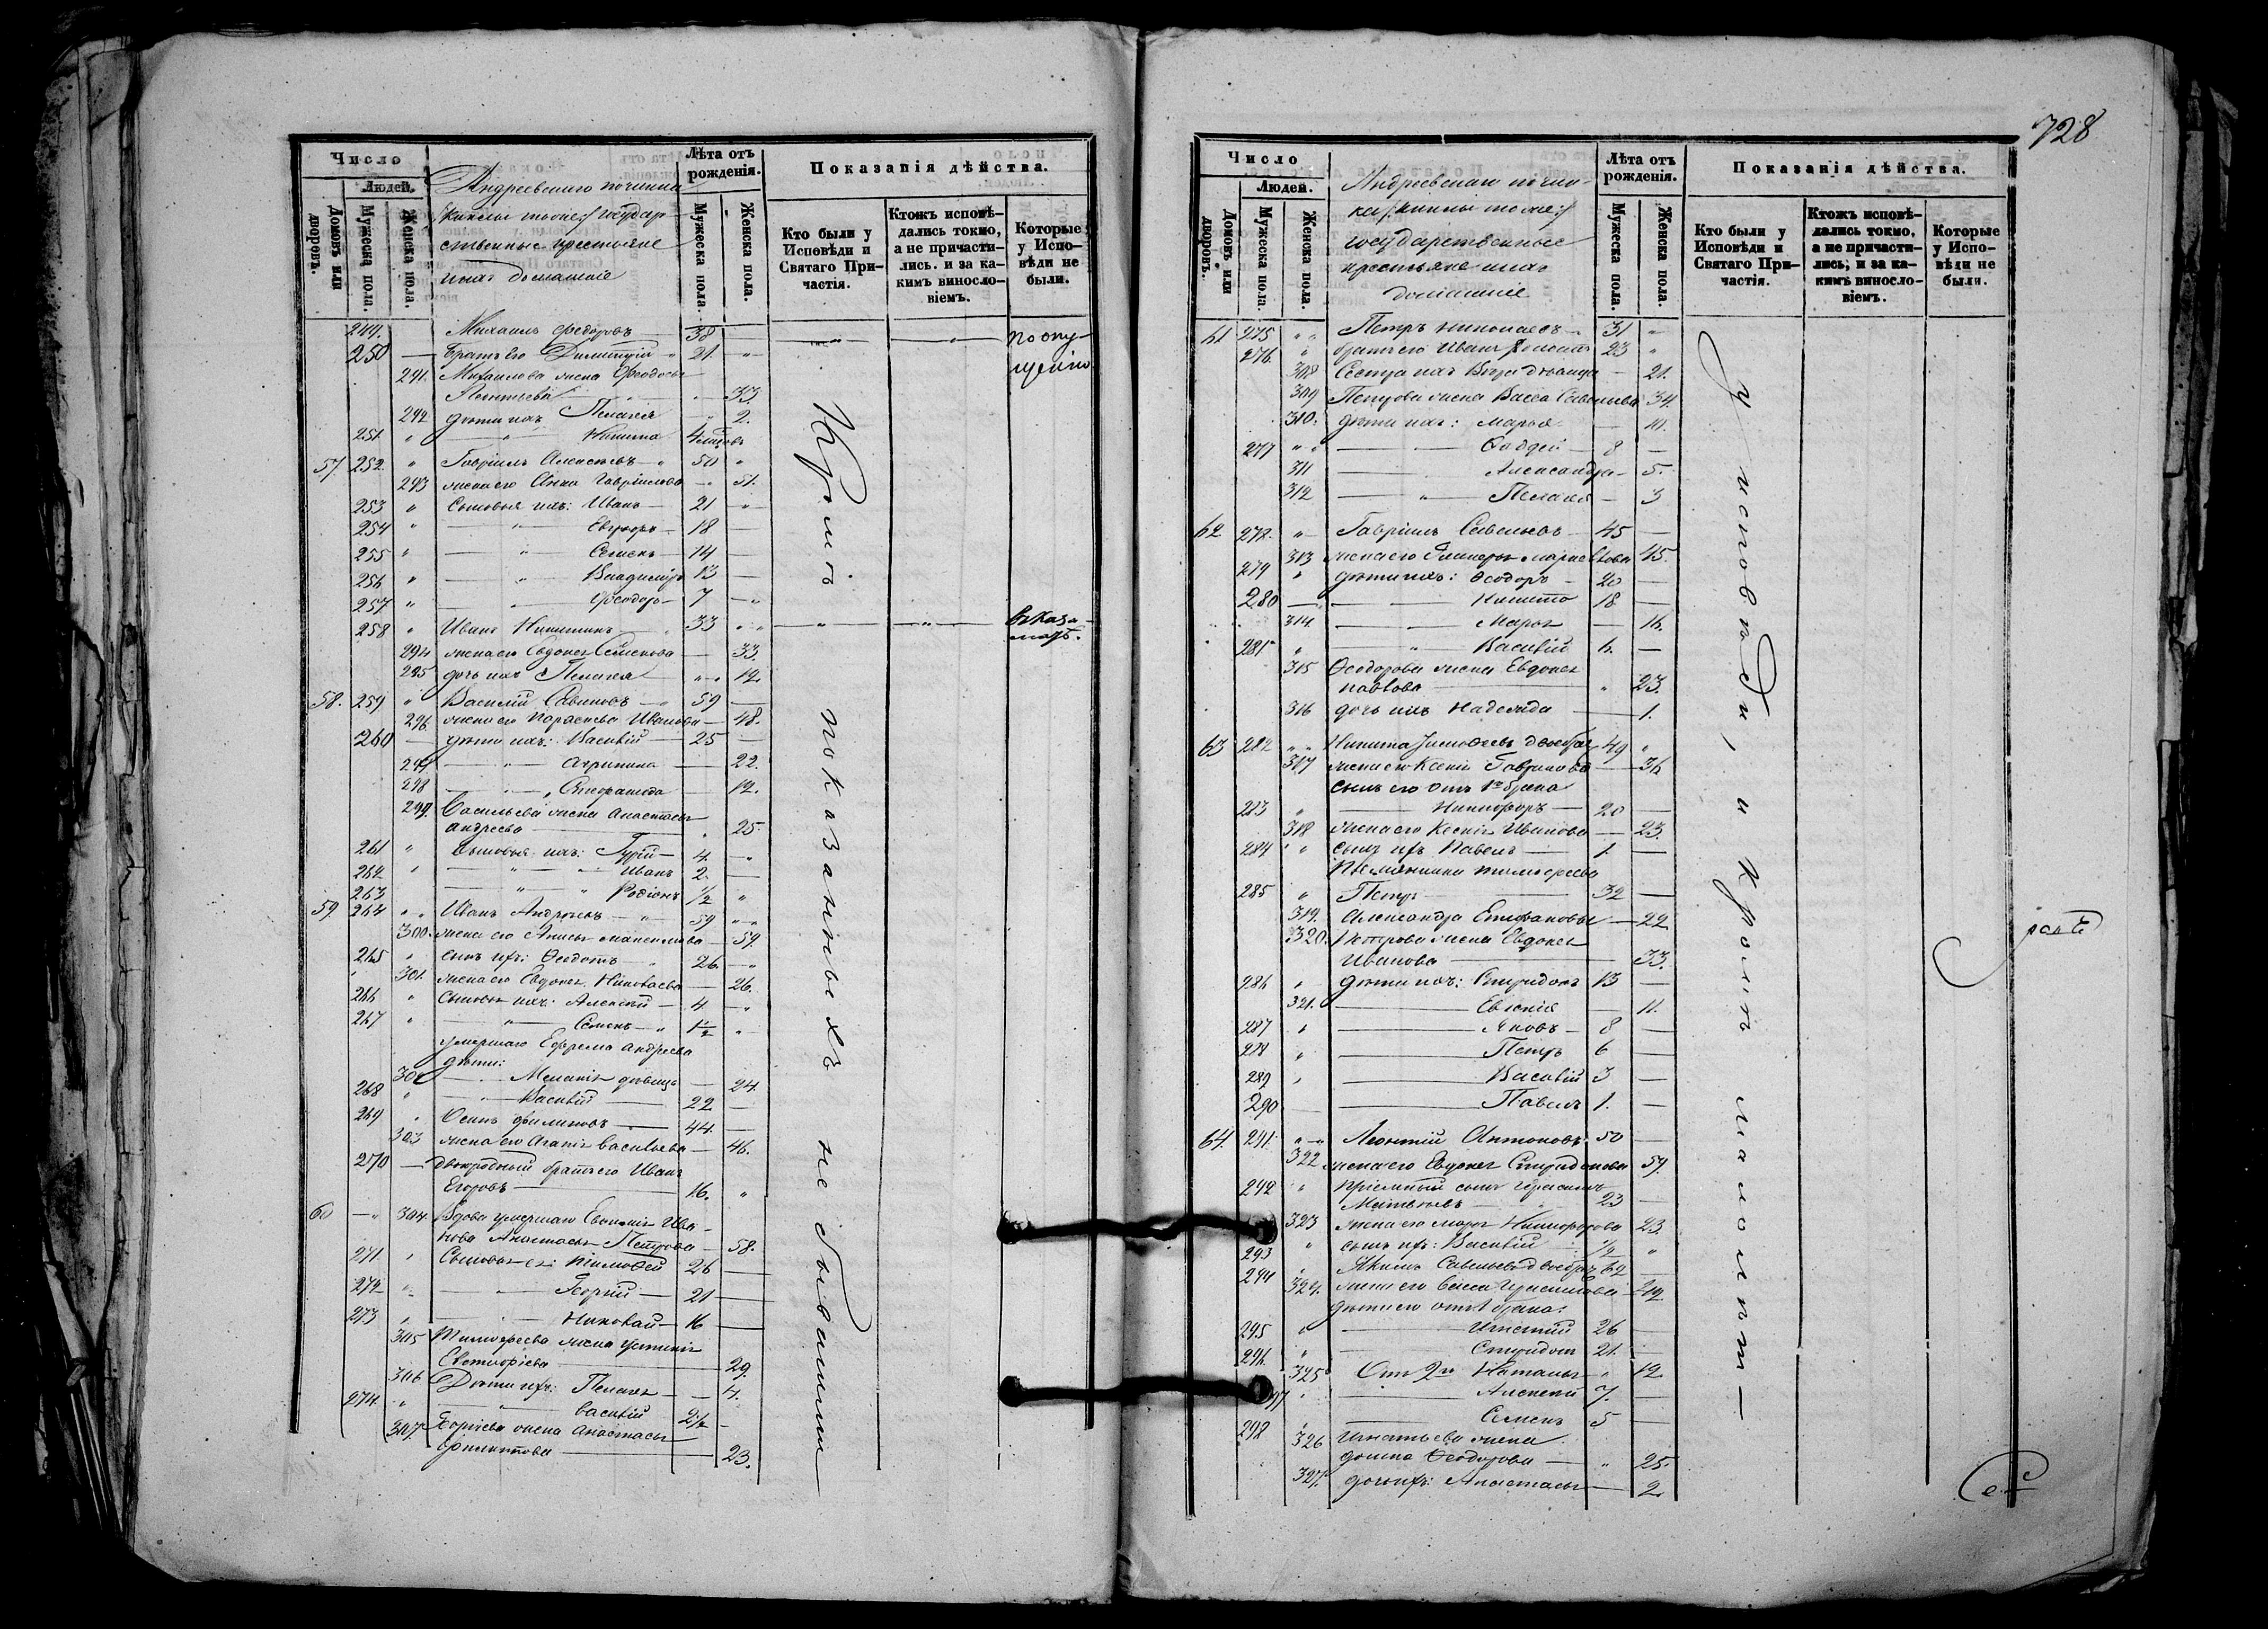 Число
Людей.
Домовъ или дворовъ.
Мужеска пола.
Женска пола.
Андреевскаго починка
государ-
ственные крестьяне
и ихъ домашніе
Лѣта отъ рожденія.
Мужеска пола.
Женска пола.
Показанія дѣйства.
Кто были у Исповѣди и Святаго При-частія.
Ктожъ исповѣ-дались токмо, а не причасти-лись. и за ка-кимъ винословіемъ.
Которые у Испо-вѣди не были.
249. Михаилъ Федоровъ — 38 по опу-
250 — братъ его Димитрій 21 щенію
291. Михаилова жена Феодосья
Леонтьева 33.
292 дѣти ихъ Пелагея 2.
251 " Никита
57 252 " Гавріилъ Алексѣевъ 50 "
293 жена его Анна Гавріилова 51.
253 " Сыновья ихъ: Иванъ 21 "
254 " Евграфъ 18 —
255 " Семенъ 14 —
256 " Владиміръ 13 —
257 " Феодоръ 7 —
258 " Иванъ Никитинъ 33
294 жена его Евдокея Семенова 33.
295 дочь ихъ Пелагея 12.
58. 259 " Василій Савиновъ 59
296. жена его Парасковья Иванова 48.
260 — дѣти ихъ: Василій 25 —
297 Агрипина 22.
298 12.
299. Васильева жена Анастасья
Андреева 25.
261 " Сыновья ихъ: Гурій 4. "
262 " Иванъ 2. —
263 Родіонъ 1/2 "
59 264 " Иванъ Андреевъ 59 "
300. жена его Анисья Максимова 59.
265 " сынъ ихъ: Ѳеодотъ 26. "
301. жена его Евдокея Николаева 26.
266 " Сыновья ихъ: Алексѣй 4 "
267 " Семенъ 1 1/2 "
умершаго Ефрема Андреева
дѣти:
302 Меланія дѣвица 24.
268 " Василій 22 —
269 " Осипъ Филиповъ 44. —
303 жена его Агапія Васильева 46.
270 — двоюродный братъ его Иванъ
Егоровъ 16. "
60 — 304 Вдова умершаго Ива-
нова Анастасья Петрова 58.
271 " Сыновья ея: Тимоѳей 26 —
272 " Георгій 21 —
273 " Николай 16 —
305 Тимофеева жена Устинія
29.
306 Дѣти ихъ: Пелагея 4.
274. " Василій 2 1/2 —
307. Георгіева жена Анастасья
Филиппова 23.
Кромѣ показанныхъ не бывшими
728
Число
Людей.
Домовъ или дворовъ.
Мужеска пола.
Женска пола.
Андреевскаго почин-
ка
государственные
крестьяне и ихъ
домашніе
Лѣта отъ рожденія.
Мужеска пола.
Женска пола.
Показанія дѣйства.
Кто были у Исповѣди и Святаго При-частія.
Ктожъ исповѣ-дались токмо, а не причасти-лись, и за ка-кимъ винословіемъ.
Которые у Испо-вѣди не были.
61 275 " Петръ Николаевъ 31 "
276. " братъ его Иванъ 23 "
308 Сестра ихъ Вѣра дѣвица — 21.
309 Петрова жена Васса Савельева 34.
310. дѣти ихъ: Марья —
277 " Фаддей 8 —
311 Александра 5.
312 Пелагея — 3
62 278. " Гавріилъ Савельевъ 45 —
313 жена его 45.
279 " дѣти ихъ: Ѳеодоръ 20 —
280 — Никита 18 —
314. Марья — 16.
281 " Василій 6. —
315 Ѳеодорова жена Евдокея
Павлова " 23.
316 дочь ихъ Надежда — 1.
63 282 " Никита Тимоѳеевъ двоебрач. 49 "
317 жена его Ксенія Гаврилова — 36
сынъ его отъ 1го брака
283 " Никифоръ 20 —
318 жена его Ксенія Иванова — 23.
284 " сынъ ихъ Павелъ 1. —
Племянники Тимофеева
285 " Петръ 32 —
319. Александра 22
320. Петрова жена Евдокея
Иванова 33.
286 " дѣти ихъ: Спиридонъ 13 —
321. Евгенія — 11.
287 " Яковъ 8 —
288 " Петръ 6 —
289 " Василій 3 —
290 Павелъ 1. —
64. 291. " Леонтій Антоновъ 50 —
322 жена его Евдокея Спиридонова 59.
292 " пріемный сынъ Герасимъ
Матвѣевъ 23 —
323 жена его Марья Никифорова 23.
293 " сынъ ихъ: Василій 1/2 "
294 " Савельевъ двоебрач. 62 —
324. жена его Васса Герасимова
дѣти его отъ 1 брака:
295 " Игнатій 26 —
296. " Спиридонъ 21. —
325 Отъ 2го Наталья " 12
297 " Алексѣй 7. —
298 " Семенъ 5 —
326 Игнатьева жена
Домна Ѳеодорова " 25.
327. дочь ихъ: Анастасья — 2
у исповѣди, и кромѣ малолѣт—